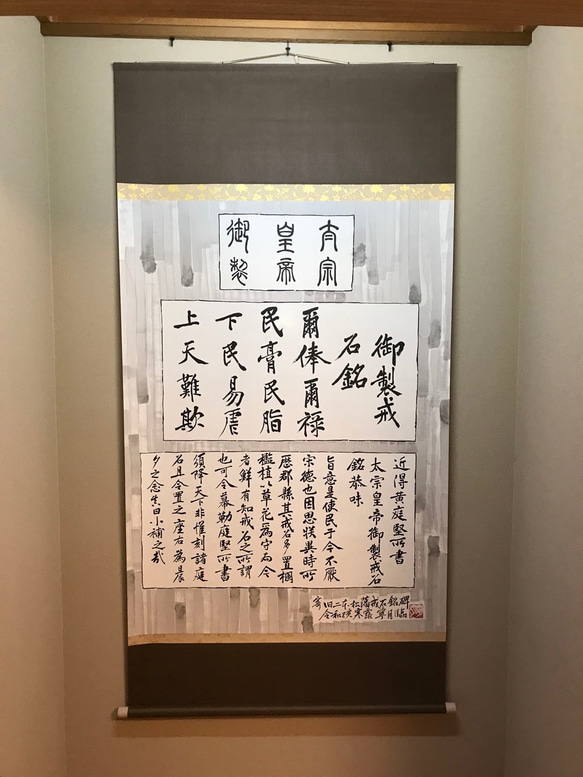 太宗
皇帝
御製
御製戒
石銘
爾俸爾禄
民膏民脂
下民易虐
上天難欺
近得黄庭堅所書
太宗皇帝御製戒石
銘恭味
旨意是使民于今不厭
宋德也因思朕異時所
歷郡縣其戒石多置欄
檻植以草花為守而今
者鮮有知戒石之所謂
也可令摹勒庭堅所書
須降天下非惟刻諸庭
石且令置之座右為晨
夕之念豈曰小補之哉
旧二本松藩戒石銘碑
令和 寒露